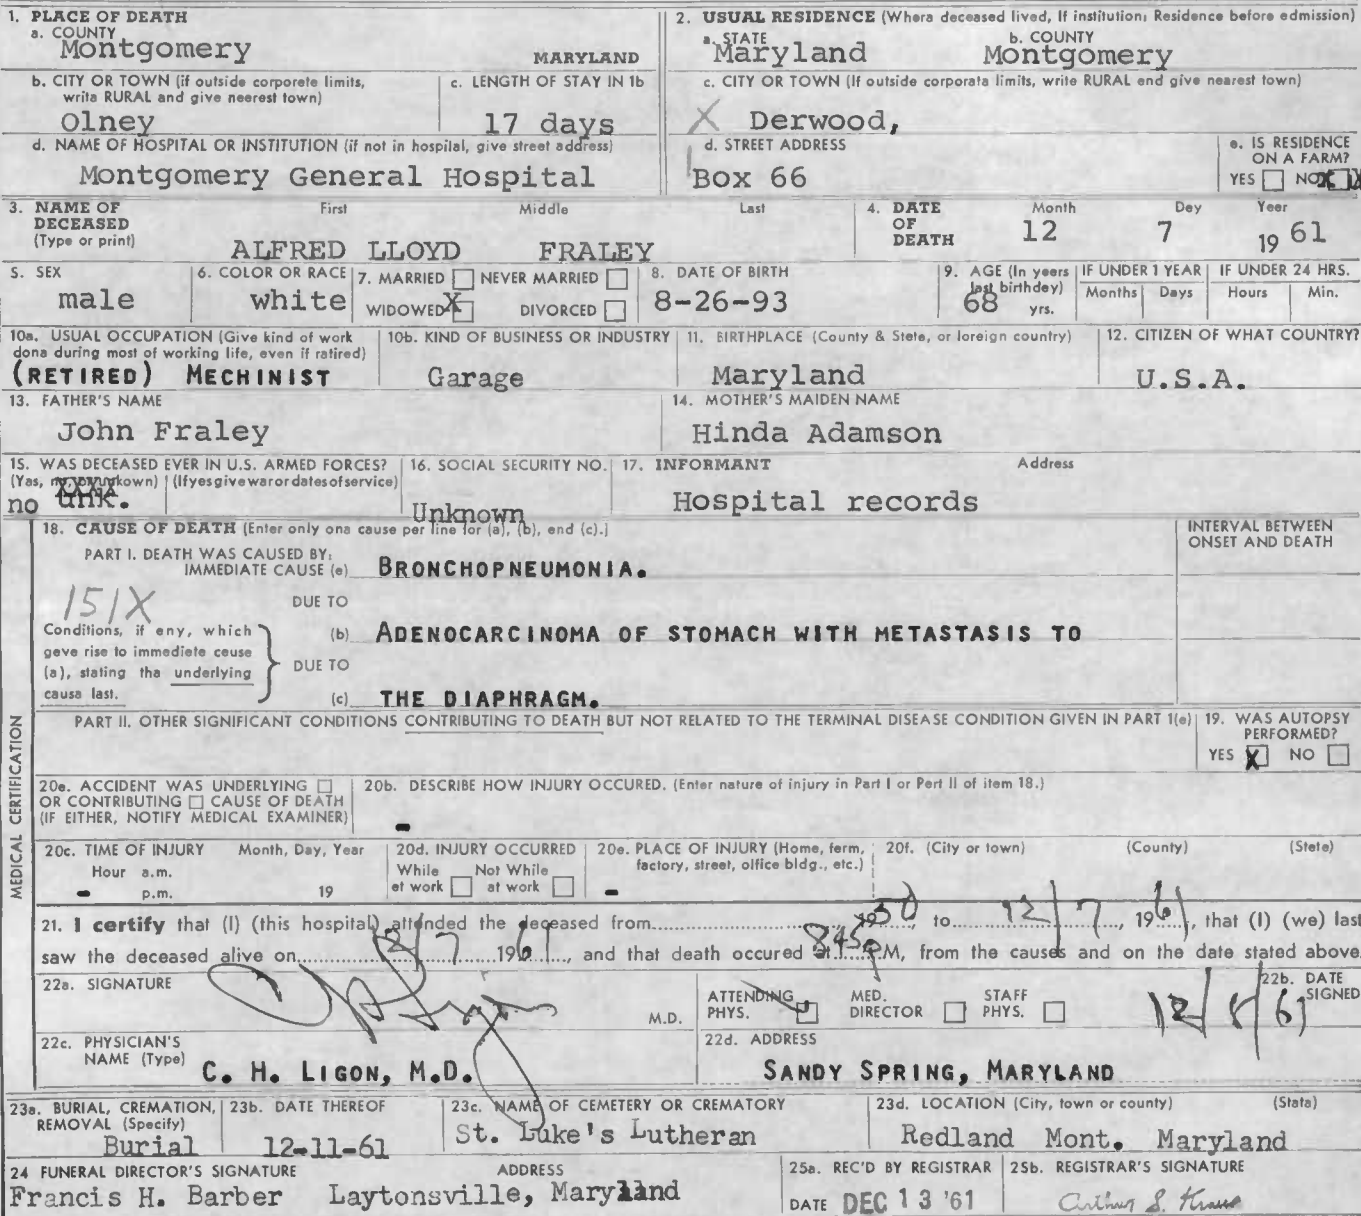 1. PLACE OF DEATH
a. COUNTY
Montgomery MARYLAND
2. USUAL RESIDENCE (Where deceased lived, If institution: Residence before admission)
a. STATE b. COUNTY
Maryland Montgomery
b. CITY OR TOWN (if outside corporete limits, write RURAL and give neerest town)
Olney
c. LENGTH OF STAY IN 1b
17 days
c. CITY OR TOWN (If outside corporata limits, write RURAL end give nearest town)
X Derwood,
d. NAME OF HOSPITAL OR INSTITUTION (if not in hospital, give street address)
Montgomery General Hospital
d. STREET ADDRESS
Box 66
e. IS RESIDENCE ON A FARM?
YES NO X
3. NAME OF DECEASED (Type or print)
First Middle Last
ALFRED LLOYD FRALEY
4. DATE OF DEATH
Month Dey Yeer
12 7 19 61
5. SEX
male
6. COLOR OR RACE
white
7. MARRIED NEVER MARRIED
WIDOWED X DIVORCED
8. DATE OF BIRTH
8-26-93
9. AGE (In yeers last birthdey)
68 yrs.
IF UNDER 1 YEAR
Months Days
IF UNDER 24 HRS.
Hours Min.
10a. USUAL OCCUPATION (Give kind of work dona during most of working life, even if ratired)
(RETIRED) MECHINIST
10b. KIND OF BUSINESS OR INDUSTRY
Garage
11. BIRTHPLACE (County & Stete, or foreign country)
Maryland
12. CITIZEN OF WHAT COUNTRY?
U.S.A.
13. FATHER'S NAME
John Fraley
14. MOTHER'S MAIDEN NAME
Hinda Adamson
15. WAS DECEASED EVER IN U.S. ARMED FORCES?
(Yes, no, or unkown) (If yes give war or dates of service)
no unk.
16. SOCIAL SECURITY NO.
Unknown
17. INFORMANT Address
Hospital records
MEDICAL CERTIFICATION
18. CAUSE OF DEATH (Enter only ona cause per line for (a), (b), end (c).)
INTERVAL BETWEEN ONSET AND DEATH
PART I. DEATH WAS CAUSED BY:
IMMEDIATE CAUSE (e) BRONCHOPNEUMONIA.
151X
DUE TO
Conditions, if eny, which geve rise to immediete ceuse (a), stating tha underlying causa last.
(b) ADENOCARCINOMA OF STOMACH WITH METASTASIS TO
DUE TO
(c) THE DIAPHRAGM.
PART II. OTHER SIGNIFICANT CONDITIONS CONTRIBUTING TO DEATH BUT NOT RELATED TO THE TERMINAL DISEASE CONDITION GIVEN IN PART 1(e)
19. WAS AUTOPSY PERFORMED?
YES X NO
20e. ACCIDENT WAS UNDERLYING
OR CONTRIBUTING CAUSE OF DEATH
(IF EITHER, NOTIFY MEDICAL EXAMINER)
20b. DESCRIBE HOW INJURY OCCURED. (Enter nature of injury in Part I or Pert II of item 18.)
-
20c. TIME OF INJURY Month, Day, Year
Hour a.m.
- p.m. 19
20d. INJURY OCCURRED
While et work Not While at work
20e. PLACE OF INJURY (Home, ferm, factory, street, office bldg., etc.)
-
20f. (City or town) (County) (Stete)
21. I certify that (I) (this hospital) attended the deceased from 1950, to 12/7, 1961, that (I) (we) last
saw the deceased alive on 12/7 1961, and that death occured at 845 P.M, from the causes and on the date stated above.
22a. SIGNATURE
M.D.
ATTENDING PHYS. MED. DIRECTOR STAFF PHYS.
22b. DATE SIGNED
12/8/61
22c. PHYSICIAN'S NAME (Type)
C. H. LIGON, M.D.
22d. ADDRESS
SANDY SPRING, MARYLAND
23a. BURIAL, CREMATION, REMOVAL (Specify)
Burial
23b. DATE THEREOF
12-11-61
23c. NAME OF CEMETERY OR CREMATORY
St. Luke's Lutheran
23d. LOCATION (City, town or county) (Stata)
Redland Mont. Maryland
24 FUNERAL DIRECTOR'S SIGNATURE ADDRESS
Francis H. Barber Laytonsville, Maryland
25a. REC'D BY REGISTRAR
DATE DEC 13 '61
25b. REGISTRAR'S SIGNATURE
Arthur S. Kraus